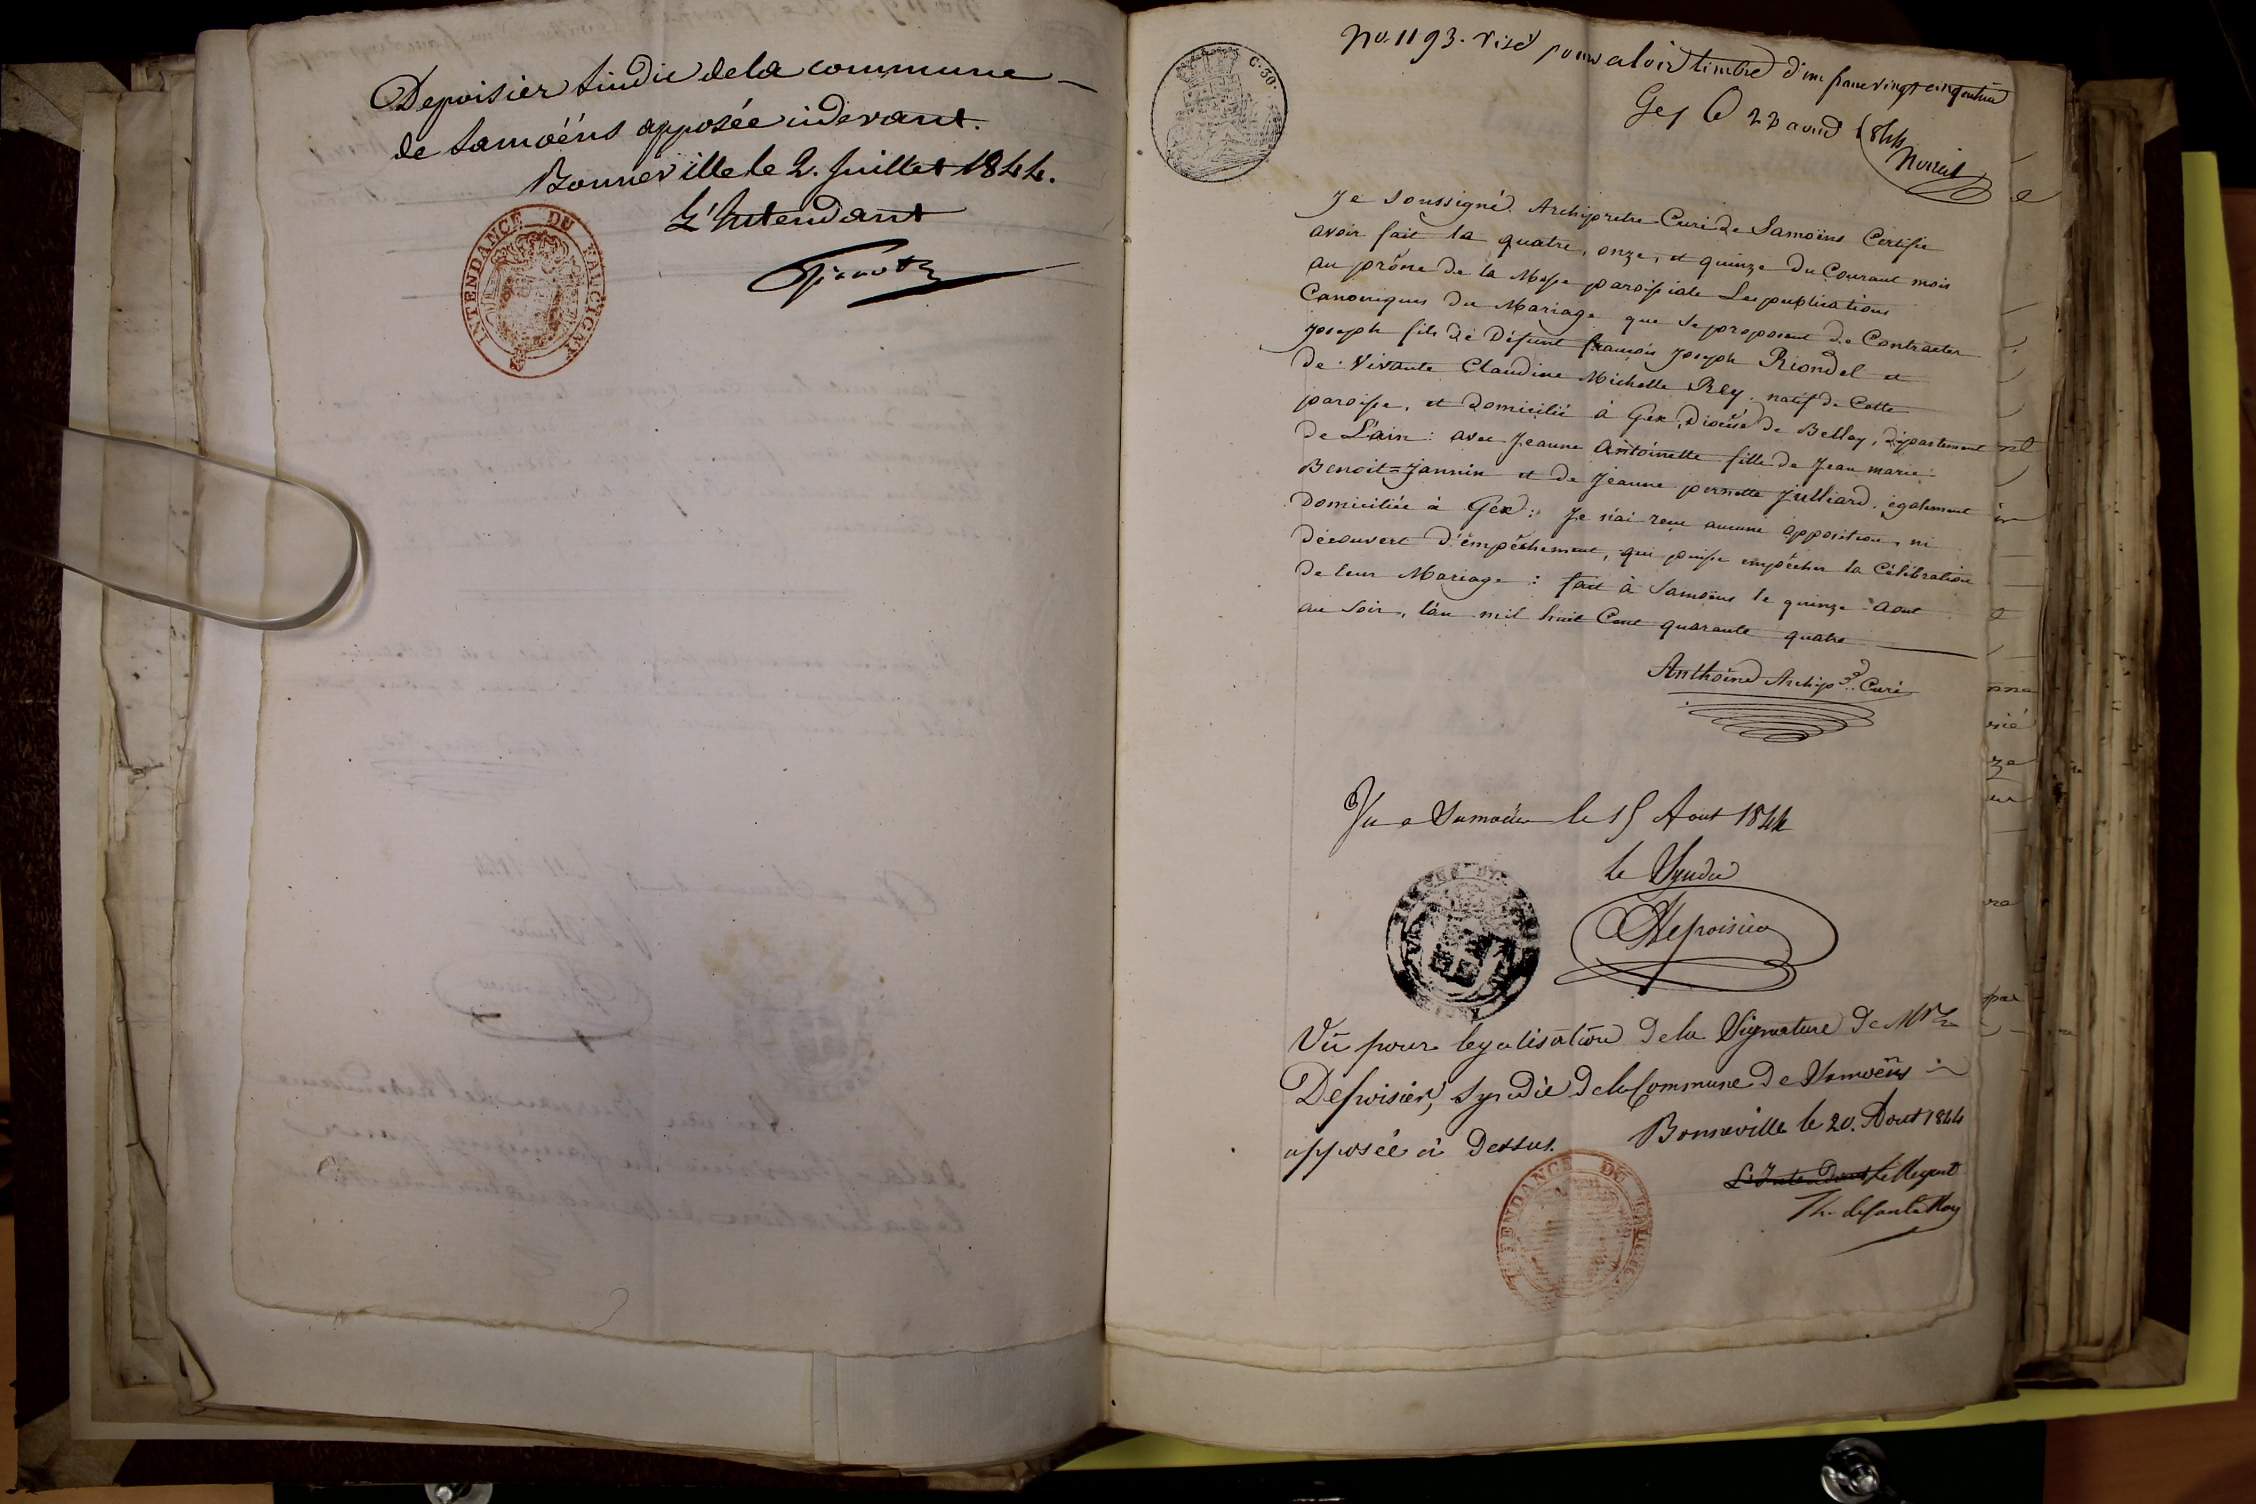 Depoisier sindic de la commune
de Samoëns apposée cidevant.
Bonneville le 2. Juillet 1844.
L'Intendant
INTENDANCE DU FAUCIGNY
No. 1193. visé pour valoir timbre d'un franc vingt cinq centimes
Gex le 22 aout 1844
C. 50.
Je soussigné Archipretre Curé de Samoëns Certifie
avoir fait la quatre, onze, et quinze du Courant mois
au prône de la Messe paroissiale Les publications
Canoniques du Mariage que se proposent de Contracter
Joseph fils de Défunt françois Joseph Riondel et
de vivante Claudine Michelle Rey, natif de Cette
paroisse, et domicilié à Gex, Diocèse de Belley, département
de L'ain : avec Jeanne Antoinette fille de Jean marie
Benoit=Jannin et de Jeanne pernette Julliard, également
domiciliée à Gex : Je n'ai reçu aucune opposition, ni
découvert d'empêchement, qui puisse empêcher la Célébration
de leur Mariage : fait à Samoëns le quinze Aout
au soir, l'an mil huit Cent quarante quatre
Anthoine Archip.re Curé
Vu a Samoëns le 15 Aout 1844
le Syndic
Depoisier
Vu pour legalisation de la Signature de Mr
Depoisier, Syndic de la Commune de Samoëns
apposée ci dessus. Bonneville le 20. Aout 1844
L'Intendant Le Regent
INTENDANCE DU FAUCIGNY